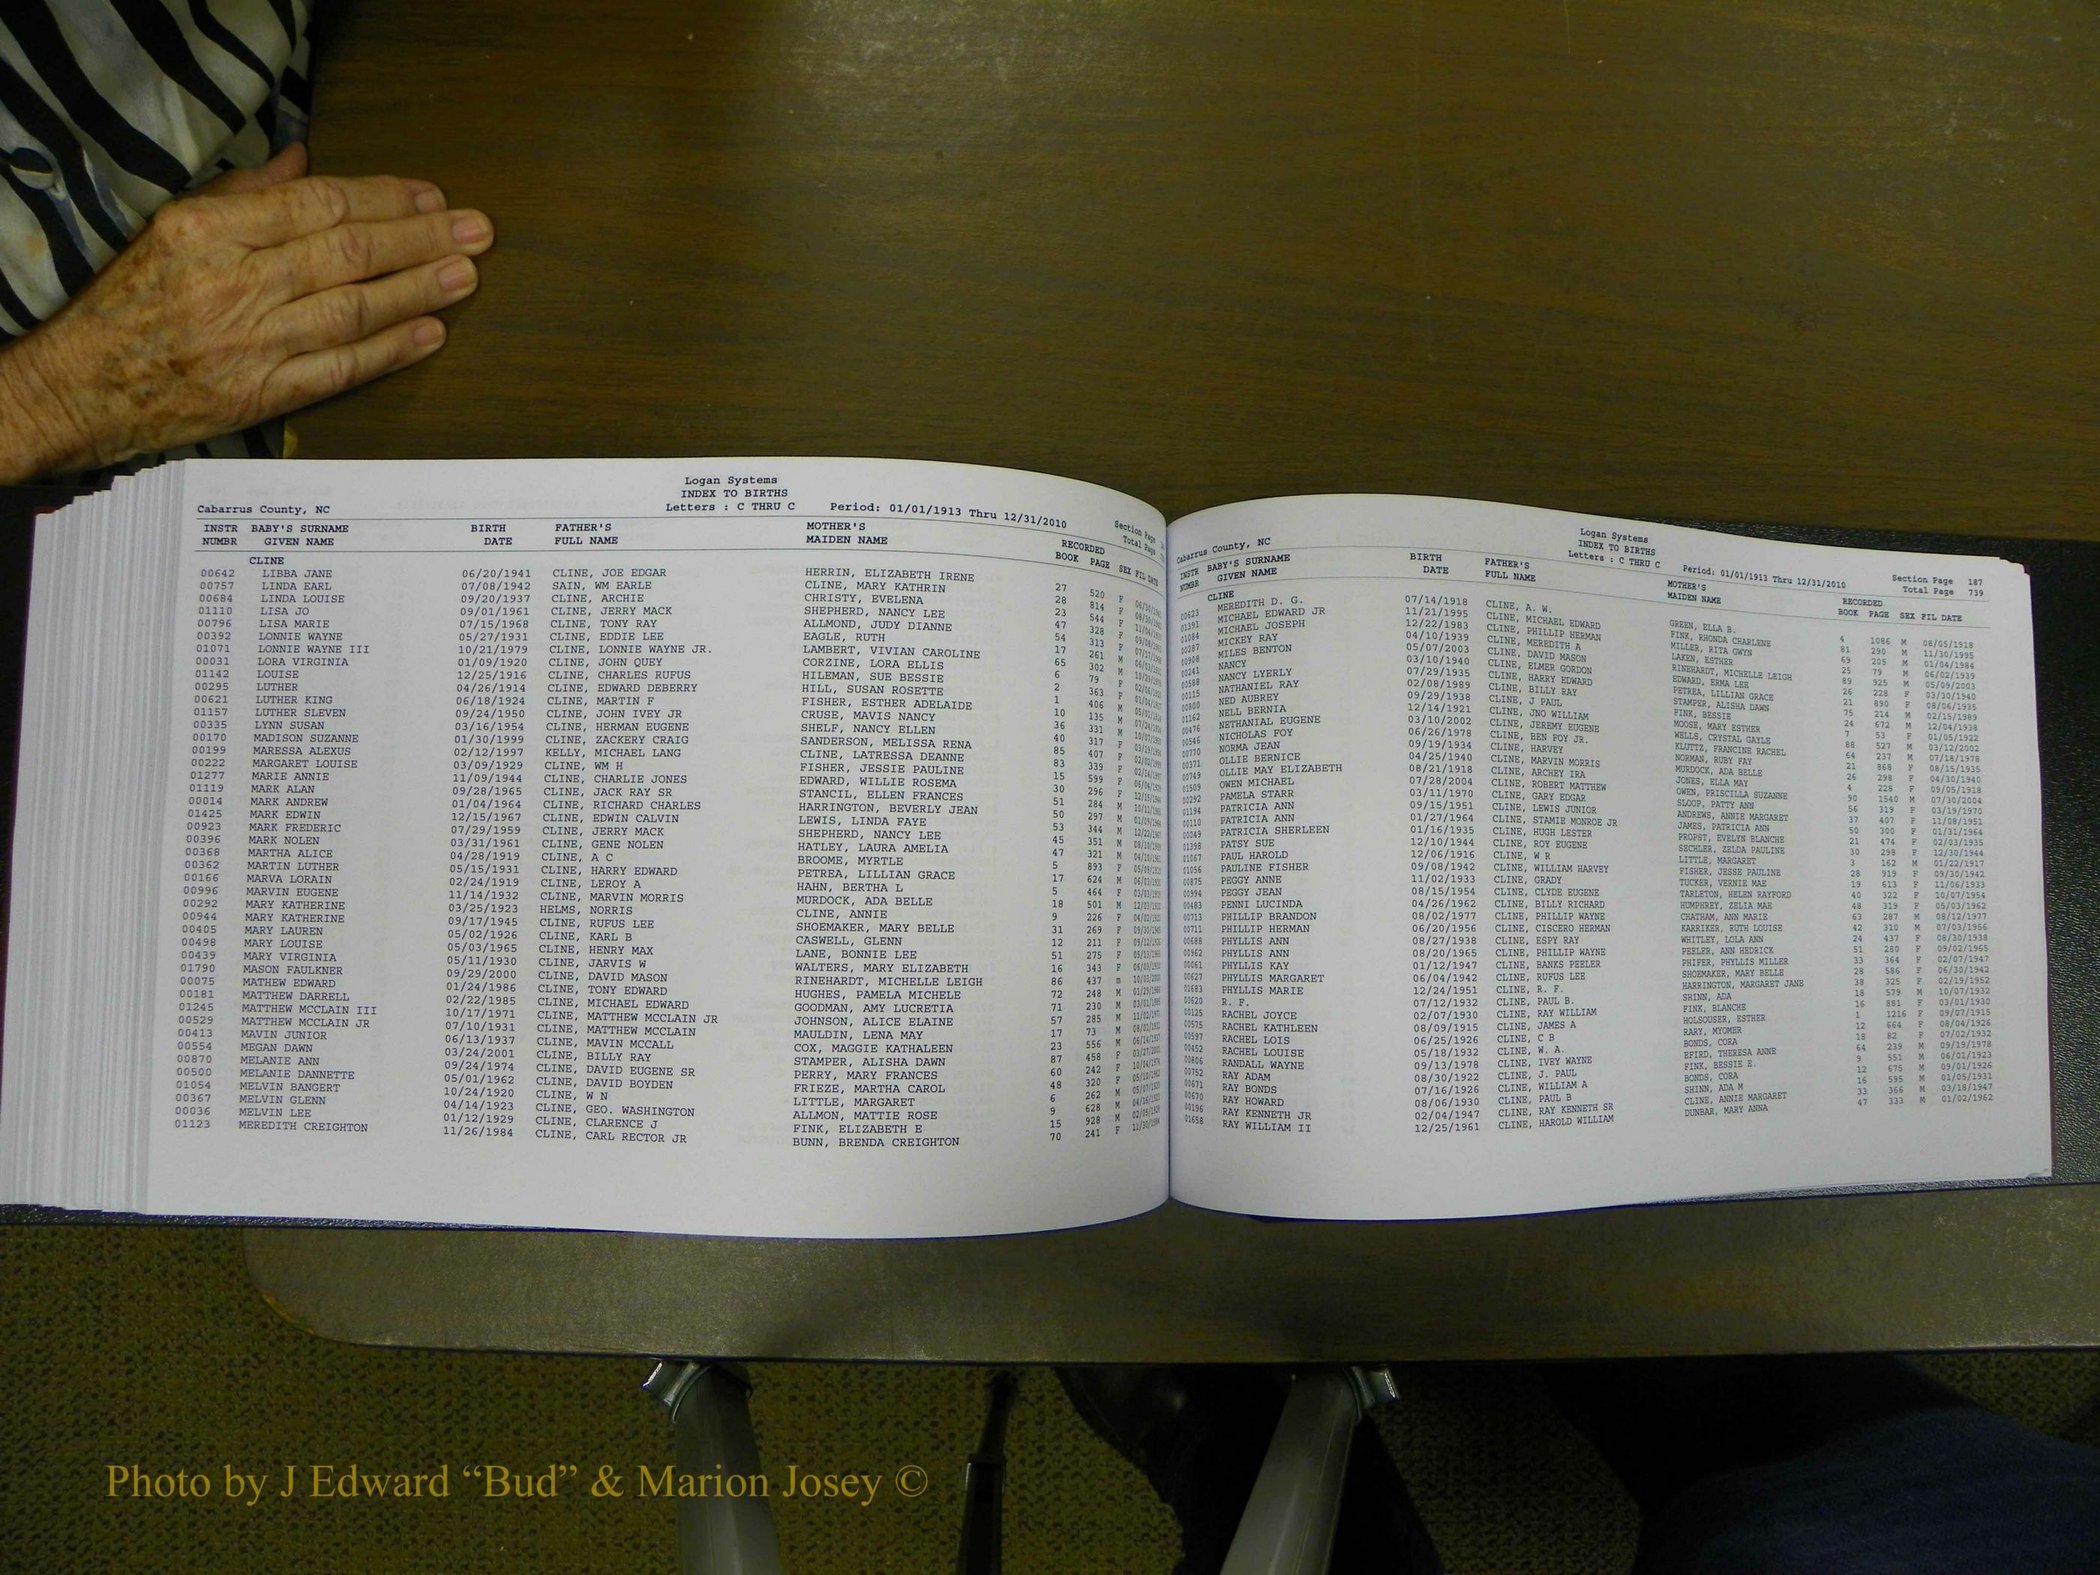 Logan Systems
INDEX TO BIRTHS
Cabarrus County, NC Letters : C THRU C Period: 01/01/1913 Thru 12/31/2010 Section Page
Total Page
INSTR BABY'S SURNAME BIRTH FATHER'S MOTHER'S RECORDED
NUMBR GIVEN NAME DATE FULL NAME MAIDEN NAME BOOK PAGE SEX FIL DATE
CLINE
00642 LIBBA JANE 06/20/1941 CLINE, JOE EDGAR HERRIN, ELIZABETH IRENE 27 520 F
00757 LINDA EARL 07/08/1942 SAIN, WM EARLE CLINE, MARY KATHRIN 28 814 F
00684 LINDA LOUISE 09/20/1937 CLINE, ARCHIE CHRISTY, EVELENA 23 544 F
01110 LISA JO 09/01/1961 CLINE, JERRY MACK SHEPHERD, NANCY LEE 47 328 F
00796 LISA MARIE 07/15/1968 CLINE, TONY RAY ALLMOND, JUDY DIANNE 54 313 F
00392 LONNIE WAYNE 05/27/1931 CLINE, EDDIE LEE EAGLE, RUTH 17 261 M
01071 LONNIE WAYNE III 10/21/1979 CLINE, LONNIE WAYNE JR. LAMBERT, VIVIAN CAROLINE 65 302 M
00031 LORA VIRGINIA 01/09/1920 CLINE, JOHN QUEY CORZINE, LORA ELLIS 6 79 F
01142 LOUISE 12/25/1916 CLINE, CHARLES RUFUS HILEMAN, SUE BESSIE 2 363 F
00295 LUTHER 04/26/1914 CLINE, EDWARD DEBERRY HILL, SUSAN ROSETTE 1 406 M
00621 LUTHER KING 06/18/1924 CLINE, MARTIN F FISHER, ESTHER ADELAIDE 10 135 M
01157 LUTHER SLEVEN 09/24/1950 CLINE, JOHN IVEY JR CRUSE, MAVIS NANCY 36 331 M
00335 LYNN SUSAN 03/16/1954 CLINE, HERMAN EUGENE SHELF, NANCY ELLEN 40 317 F
00170 MADISON SUZANNE 01/30/1999 CLINE, ZACKERY CRAIG SANDERSON, MELISSA RENA 85 407 F
00199 MARESSA ALEXUS 02/12/1997 KELLY, MICHAEL LANG CLINE, LATRESSA DEANNE 83 339 F
00222 MARGARET LOUISE 03/09/1929 CLINE, WM H FISHER, JESSIE PAULINE 15 599 F
01277 MARIE ANNIE 11/09/1944 CLINE, CHARLIE JONES EDWARD, WILLIE ROSEMA 30 296 F
01119 MARK ALAN 09/28/1965 CLINE, JACK RAY SR STANCIL, ELLEN FRANCES 51 284 M
00014 MARK ANDREW 01/04/1964 CLINE, RICHARD CHARLES HARRINGTON, BEVERLY JEAN 50 297 M
01425 MARK EDWIN 12/15/1967 CLINE, EDWIN CALVIN LEWIS, LINDA FAYE 53 344 M
00923 MARK FREDERIC 07/29/1959 CLINE, JERRY MACK SHEPHERD, NANCY LEE 45 351 M
00396 MARK NOLEN 03/31/1961 CLINE, GENE NOLEN HATLEY, LAURA AMELIA 47 321 M
00368 MARTHA ALICE 04/28/1919 CLINE, A C BROOME, MYRTLE 5 893 F
00362 MARTIN LUTHER 05/15/1931 CLINE, HARRY EDWARD PETREA, LILLIAN GRACE 17 624 M
00166 MARVA LORAIN 02/24/1919 CLINE, LEROY A HAHN, BERTHA L 5 464 F
00996 MARVIN EUGENE 11/14/1932 CLINE, MARVIN MORRIS MURDOCK, ADA BELLE 18 501 M
00292 MARY KATHERINE 03/25/1923 HELMS, NORRIS CLINE, ANNIE 9 226 F
00944 MARY KATHERINE 09/17/1945 CLINE, RUFUS LEE SHOEMAKER, MARY BELLE 31 269 F
00405 MARY LAUREN 05/02/1926 CLINE, KARL B CASWELL, GLENN 12 211 F
00498 MARY LOUISE 05/03/1965 CLINE, HENRY MAX LANE, BONNIE LEE 51 275 F
00439 MARY VIRGINIA 05/11/1930 CLINE, JARVIS W WALTERS, MARY ELIZABETH 16 343 F
01790 MASON FAULKNER 09/29/2000 CLINE, DAVID MASON RINEHARDT, MICHELLE LEIGH 86 437 m
00075 MATHEW EDWARD 01/24/1986 CLINE, TONY EDWARD HUGHES, PAMELA MICHELE 72 248 M
00181 MATTHEW DARRELL 02/22/1985 CLINE, MICHAEL EDWARD GOODMAN, AMY LUCRETIA 71 230 M
01245 MATTHEW MCCLAIN III 10/17/1971 CLINE, MATTHEW MCCLAIN JR JOHNSON, ALICE ELAINE 57 285 M
00529 MATTHEW MCCLAIN JR 07/10/1931 CLINE, MATTHEW MCCLAIN MAULDIN, LENA MAY 17 73 M
00413 MAVIN JUNIOR 06/13/1937 CLINE, MAVIN MCCALL COX, MAGGIE KATHALEEN 23 556 M
00554 MEGAN DAWN 03/24/2001 CLINE, BILLY RAY STAMPER, ALISHA DAWN 87 458 F
00870 MELANIE ANN 09/24/1974 CLINE, DAVID EUGENE SR PERRY, MARY FRANCES 60 242 F
00500 MELANIE DANNETTE 05/01/1962 CLINE, DAVID BOYDEN FRIEZE, MARTHA CAROL 48 320 F
01054 MELVIN BANGERT 10/24/1920 CLINE, W N LITTLE, MARGARET 6 262 M
00367 MELVIN GLENN 04/14/1923 CLINE, GEO. WASHINGTON ALLMON, MATTIE ROSE 9 628 M
00036 MELVIN LEE 01/12/1929 CLINE, CLARENCE J FINK, ELIZABETH E 15 928 M
01123 MEREDITH CREIGHTON 11/26/1984 CLINE, CARL RECTOR JR BUNN, BRENDA CREIGHTON 70 241 F 11/30/1984
Logan Systems
INDEX TO BIRTHS
Cabarrus County, NC Letters : C THRU C Period: 01/01/1913 Thru 12/31/2010 Section Page 187
Total Page 739
INSTR BABY'S SURNAME BIRTH FATHER'S MOTHER'S RECORDED
NUMBR GIVEN NAME DATE FULL NAME MAIDEN NAME BOOK PAGE SEX FIL DATE
CLINE
00623 MEREDITH D. G. 07/14/1918 CLINE, A. W. GREEN, ELLA B. 4 1086 M 08/05/1918
01391 MICHAEL EDWARD JR 11/21/1995 CLINE, MICHAEL EDWARD FINK, RHONDA CHARLENE 81 290 M 11/30/1995
01084 MICHAEL JOSEPH 12/22/1983 CLINE, PHILLIP HERMAN MILLER, RITA GWYN 69 205 M 01/04/1984
00287 MICKEY RAY 04/10/1939 CLINE, MEREDITH A LAKEN, ESTHER 25 79 M 06/02/1939
00908 MILES BENTON 05/07/2003 CLINE, DAVID MASON RINEHARDT, MICHELLE LEIGH 89 925 M 05/09/2003
00241 NANCY 03/10/1940 CLINE, ELMER GORDON EDWARD, ERMA LEE 26 228 F 03/30/1940
00588 NANCY LYERLY 07/29/1935 CLINE, HARRY EDWARD PETREA, LILLIAN GRACE 21 890 F 08/06/1935
00115 NATHANIEL RAY 02/08/1989 CLINE, BILLY RAY STAMPER, ALISHA DAWN 75 214 M 02/15/1989
00800 NED AUBREY 09/29/1938 CLINE, J PAUL FINK, BESSIE 24 672 M 12/04/1938
01162 NELL BERNIA 12/14/1921 CLINE, JNO WILLIAM MOOSE, MARY ESTHER 7 53 F 01/05/1922
00476 NETHANIAL EUGENE 03/10/2002 CLINE, JEREMY EUGENE WELLS, CRYSTAL GAYLE 88 527 M 03/12/2002
00546 NICHOLAS FOY 06/26/1978 CLINE, BEN FOY JR. KLUTTZ, FRANCINE RACHEL 64 237 M 07/18/1978
00770 NORMA JEAN 09/19/1934 CLINE, HARVEY NORMAN, RUBY FAY 21 868 F 08/15/1935
00371 OLLIE BERNICE 04/25/1940 CLINE, MARVIN MORRIS MURDOCK, ADA BELLE 26 298 F 04/30/1940
00749 OLLIE MAY ELIZABETH 08/21/1918 CLINE, ARCHEY IRA JONES, ELLA MAY 4 228 F 09/05/1918
01509 OWEN MICHAEL 07/28/2004 CLINE, ROBERT MATTHEW OWEN, PRISCILLA SUZANNE 90 1540 M 07/30/2004
00292 PAMELA STARR 03/11/1970 CLINE, GARY EDGAR SLOOP, PATTY ANN 56 319 F 03/19/1970
01194 PATRICIA ANN 09/15/1951 CLINE, LEWIS JUNIOR ANDREWS, ANNIE MARGARET 37 407 F 11/08/1951
00110 PATRICIA ANN 01/27/1964 CLINE, STAMIE MONROE JR JAMES, PATRICIA ANN 50 300 F 01/31/1964
00049 PATRICIA SHERLEEN 01/16/1935 CLINE, HUGH LESTER PROPST, EVELYN BLANCHE 21 474 F 02/03/1935
01398 PATSY SUE 12/10/1944 CLINE, ROY EUGENE SECHLER, ZELDA PAULINE 30 298 F 12/30/1944
01067 PAUL HAROLD 12/06/1916 CLINE, W R LITTLE, MARGARET 3 162 M 01/22/1917
01056 PAULINE FISHER 09/08/1942 CLINE, WILLIAM HARVEY FISHER, JESSE PAULINE 28 919 F 09/30/1942
00875 PEGGY ANNE 11/02/1933 CLINE, GRADY TUCKER, VERNIE MAE 19 613 F 11/06/1933
00994 PEGGY JEAN 08/15/1954 CLINE, CLYDE EUGENE TARLETON, HELEN RAYFORD 40 322 F 10/07/1954
00483 PENNI LUCINDA 04/26/1962 CLINE, BILLY RICHARD HUMPHREY, ZELIA MAE 48 319 F 05/03/1962
00713 PHILLIP BRANDON 08/02/1977 CLINE, PHILLIP WAYNE CHATHAM, ANN MARIE 63 287 M 08/12/1977
00711 PHILLIP HERMAN 06/20/1956 CLINE, CISCERO HERMAN KARRIKER, RUTH LOUISE 42 310 M 07/03/1956
00688 PHYLLIS ANN 08/27/1938 CLINE, ESPY RAY WHITLEY, LOLA ANN 24 437 F 08/30/1938
00962 PHYLLIS ANN 08/20/1965 CLINE, PHILLIP WAYNE PEELER, ANN HEDRICK 51 280 F 09/02/1965
00061 PHYLLIS KAY 01/12/1947 CLINE, BANKS PEELER PHIFER, PHYLLIS MILLER 33 364 F 02/07/1947
00627 PHYLLIS MARGARET 06/04/1942 CLINE, RUFUS LEE SHOEMAKER, MARY BELLE 28 586 F 06/30/1942
01683 PHYLLIS MARIE 12/24/1951 CLINE, R. F. HARRINGTON, MARGARET JANE 38 325 F 02/19/1952
00620 R. F. 07/12/1932 CLINE, PAUL B. SHINN, ADA 18 579 M 10/07/1932
00125 RACHEL JOYCE 02/07/1930 CLINE, RAY WILLIAM FINK, BLANCHE 16 881 F 03/01/1930
00575 RACHEL KATHLEEN 08/09/1915 CLINE, JAMES A HOLSOUSER, ESTHER 1 1216 F 09/07/1915
00597 RACHEL LOIS 06/25/1926 CLINE, C B RARY, MYOMER 12 664 F 08/04/1926
00452 RACHEL LOUISE 05/18/1932 CLINE, W. A. BONDS, CORA 18 82 F 07/02/1932
00806 RANDALL WAYNE 09/13/1978 CLINE, IVEY WAYNE EFIRD, THERESA ANNE 64 239 M 09/19/1978
00752 RAY ADAM 08/30/1922 CLINE, J. PAUL FINK, BESSIE E. 9 551 M 06/01/1923
00671 RAY BONDS 07/16/1926 CLINE, WILLIAM A BONDS, CORA 12 675 M 09/01/1926
00670 RAY HOWARD 08/06/1930 CLINE, PAUL B SHINN, ADA M 16 595 M 01/05/1931
00196 RAY KENNETH JR 02/04/1947 CLINE, RAY KENNETH SR CLINE, ANNIE MARGARET 33 366 M 03/18/1947
01658 RAY WILLIAM II 12/25/1961 CLINE, HAROLD WILLIAM DUNBAR, MARY ANNA 47 333 M 01/02/1962
Photo by J Edward “Bud” & Marion Josey ©